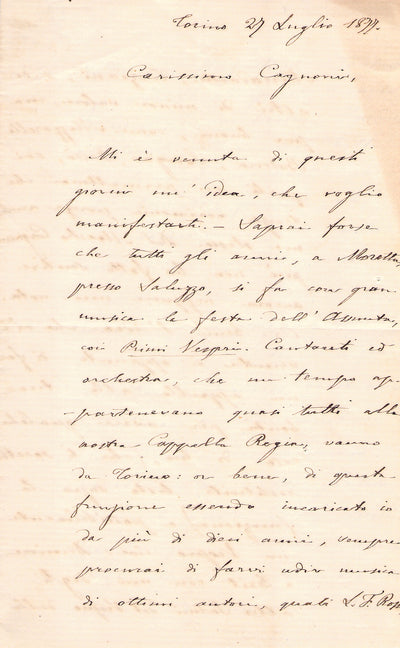 Torino 27 Luglio 1877.
Carissimo Cagnoni,
Mi è venuta di questi
giorni un' idea, che voglio
manifestarti. – Saprai forse
che tutti gli anni, a Moretta,
presso Saluzzo, si fa con gran
musica la festa dell' Assunta,
coi Primi Vespri. Cantanti ed
orchestra, che un tempo ap-
-partenevano quasi tutti alla
nostra Cappella Regia, vanno
da Torino: or bene, di questa
funzione essendo incaricato io
da più di dieci anni, sempre
procurai di farvi udir musica
di ottimi autori, quali L. F. Rossi